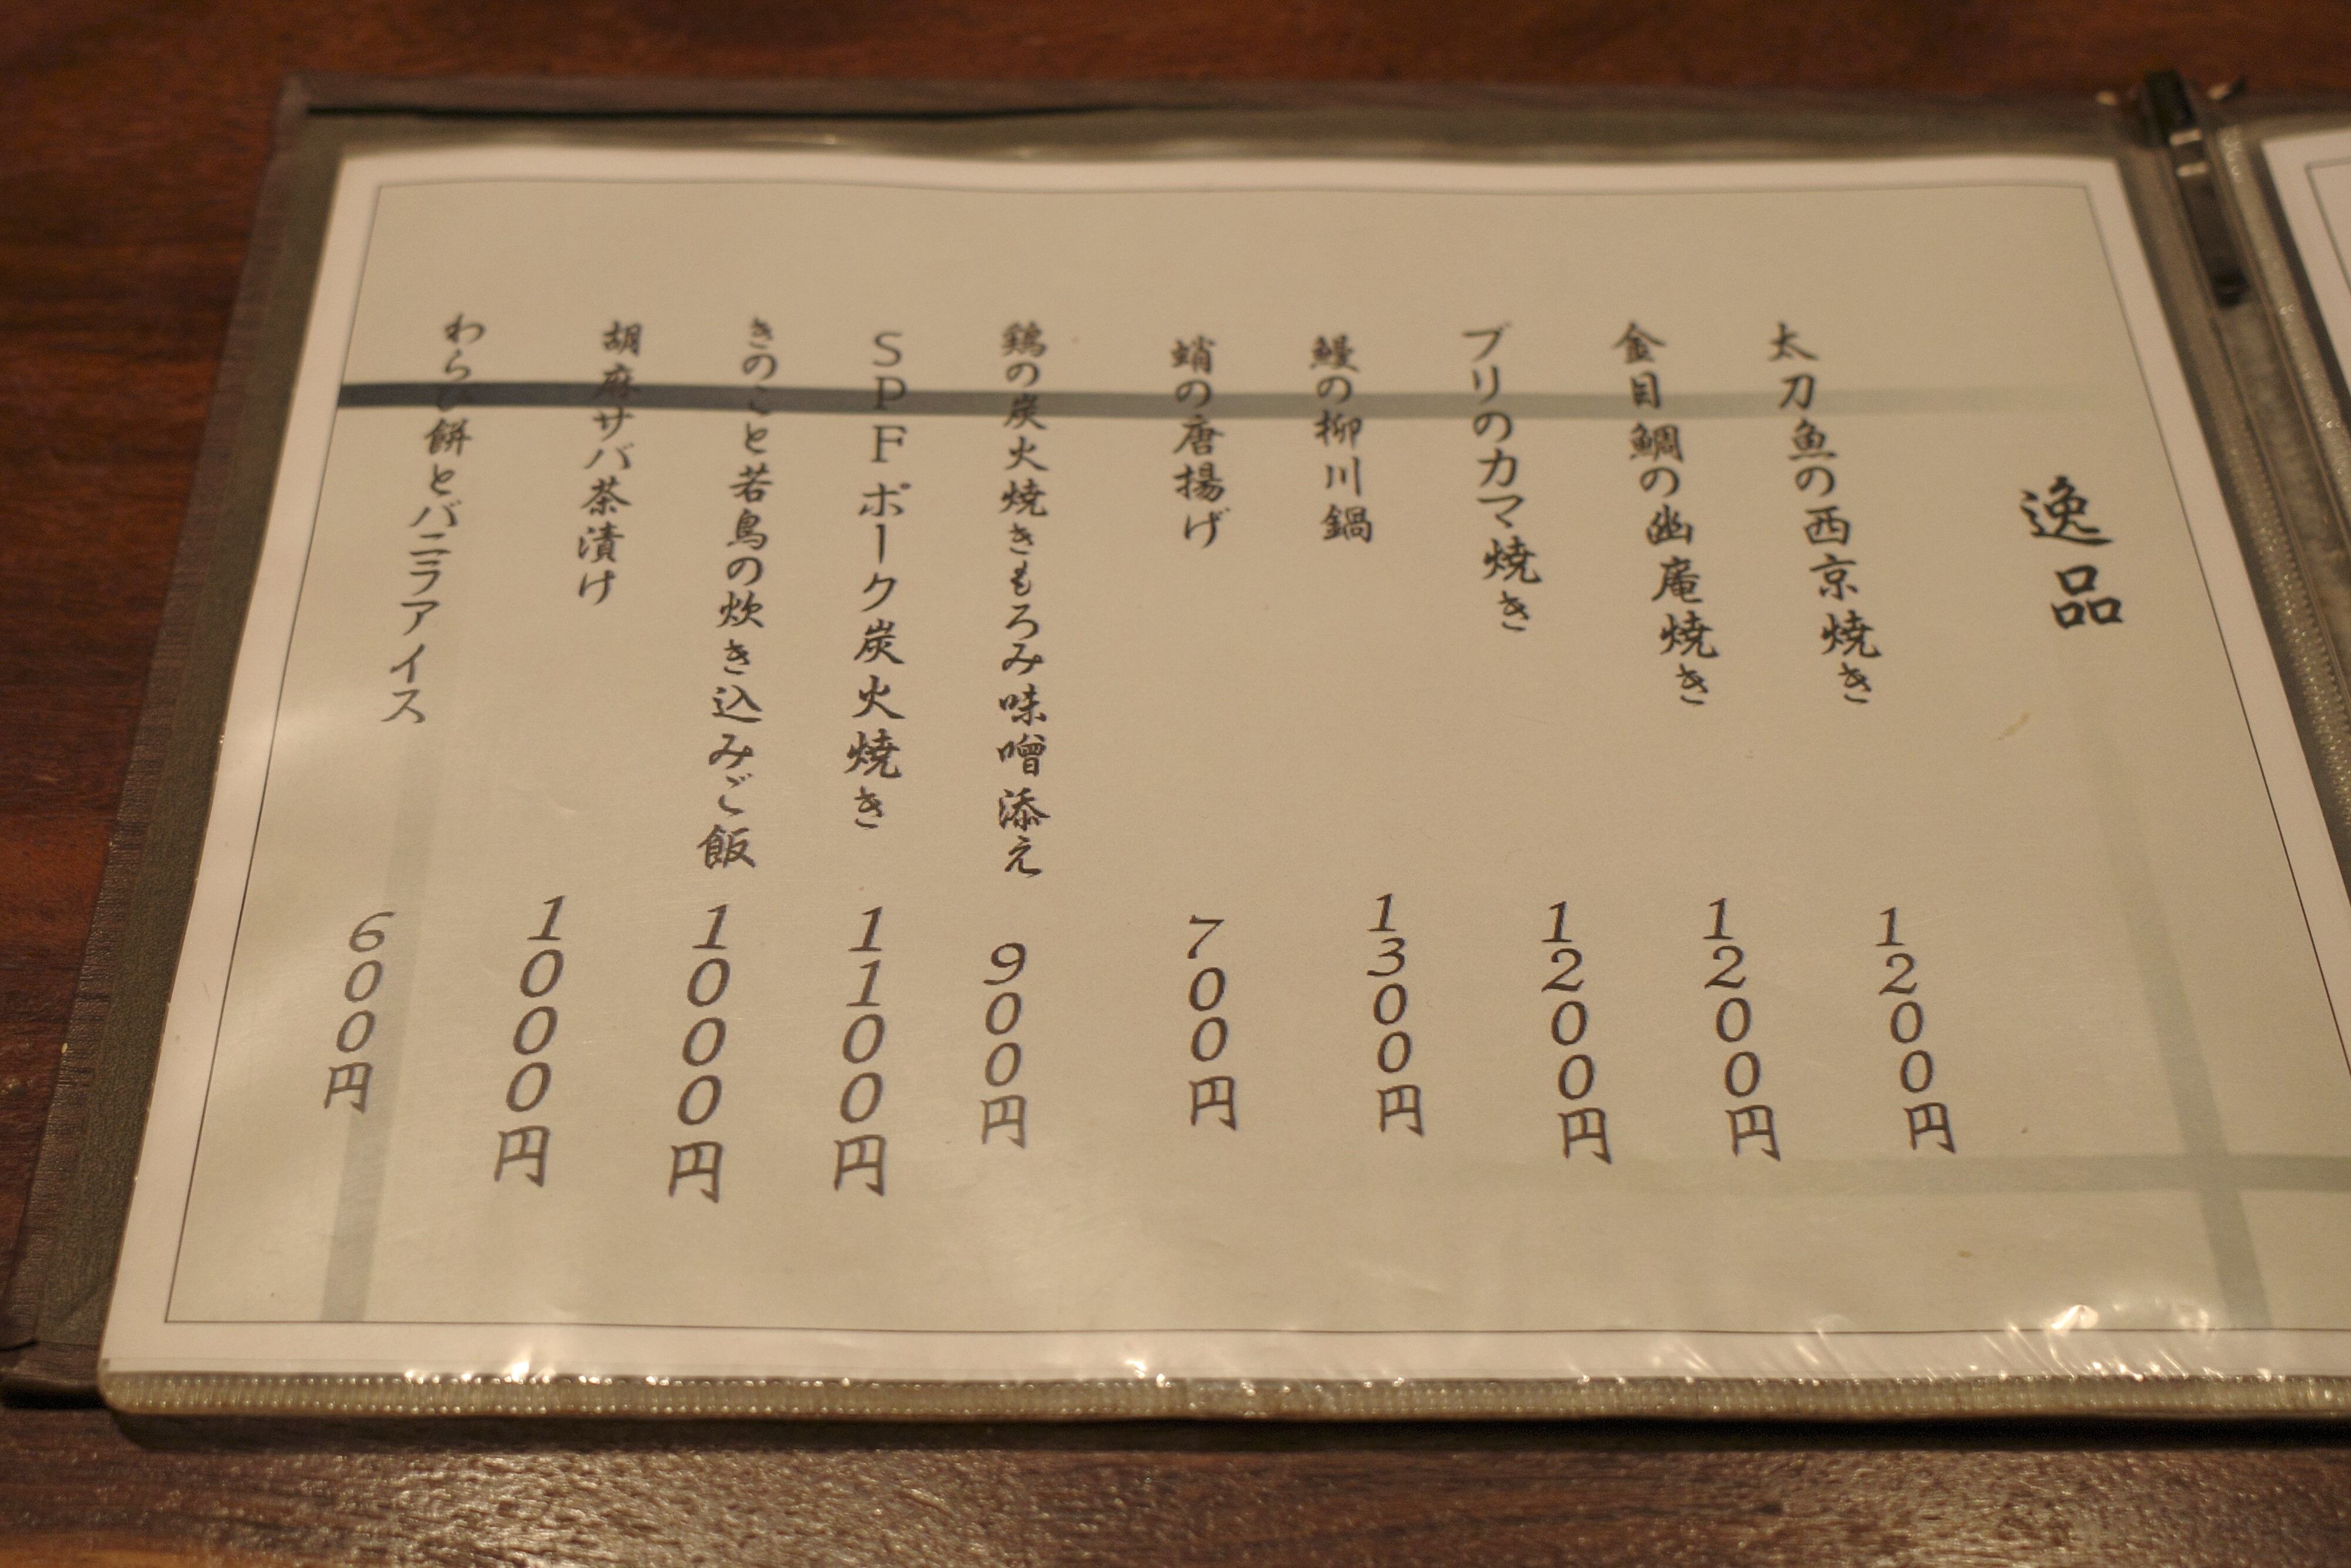 逸品
太刀魚の西京焼き 1200円
金目鯛の幽庵焼き 1200円
ブリのカマ焼き 1200円
鰻の柳川鍋 1300円
蛸の唐揚げ 700円
鶏の炭火焼きもろみ味噌添え 900円
SPFポーク炭火焼き 1100円
きのこと若鳥の炊き込みご飯 1000円
胡麻サバ茶漬け 1000円
わらび餅とバニラアイス 600円